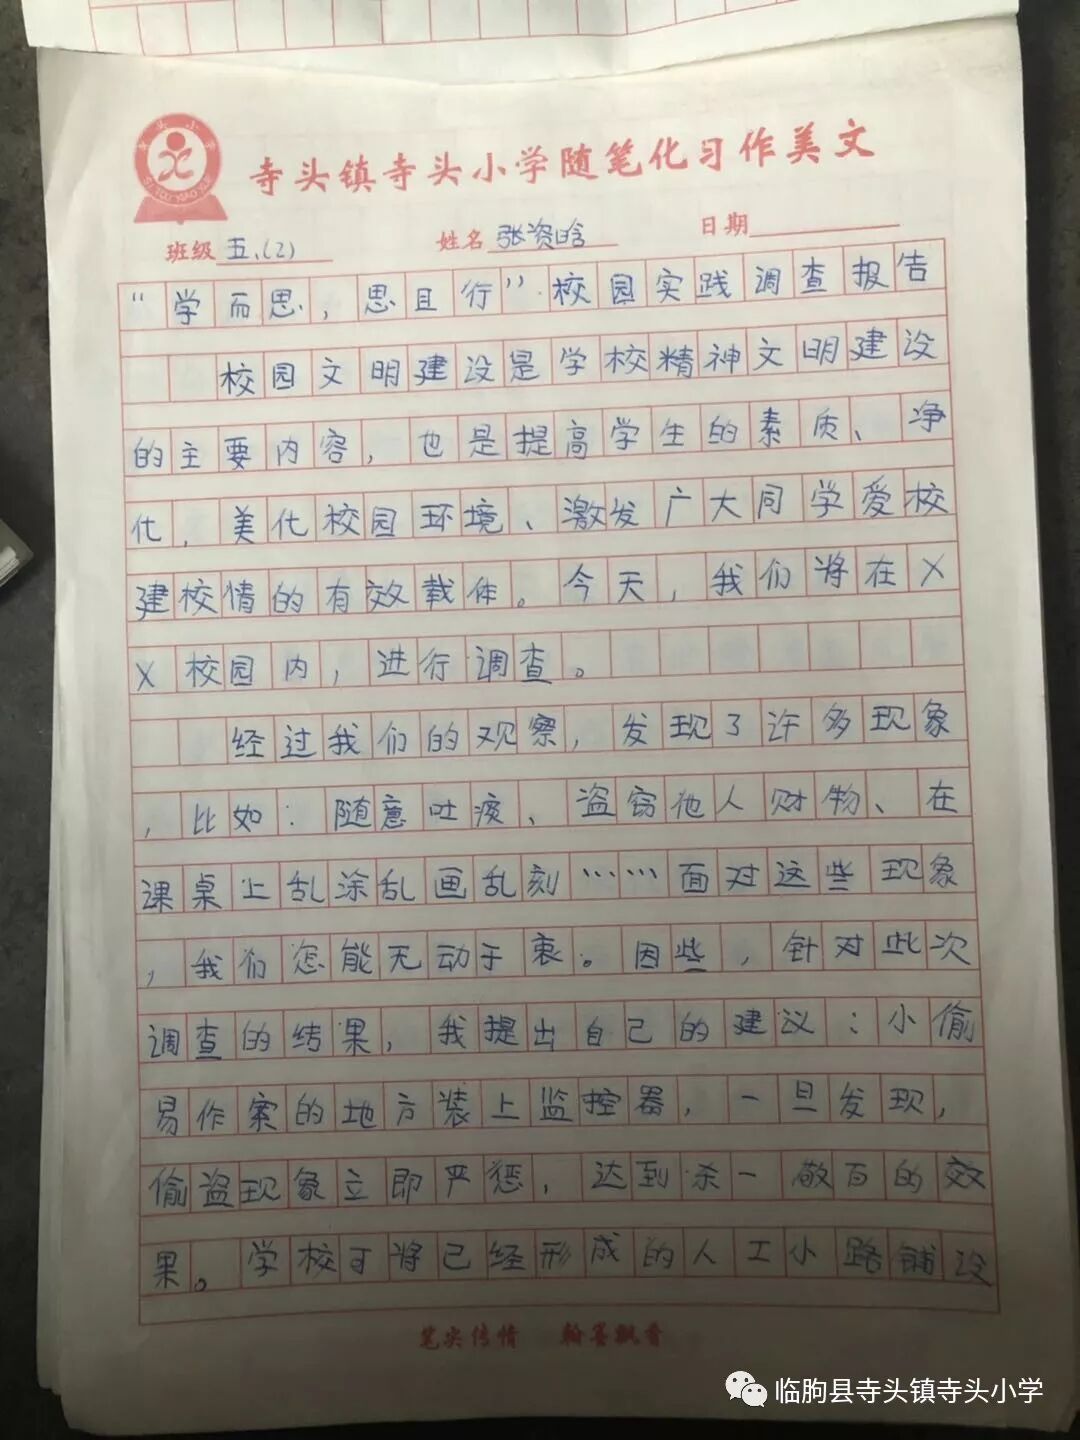 寺头小学
寺头镇寺头小学随笔化习作美文
班级 五.(2) 姓名 张资晗 日期
“学而思,思且行”校园实践调查报告
校园文明建设是学校精神文明建设
的主要内容,也是提高学生的素质、净
化,美化校园环境、激发广大同学爱校
建校情的有效载体。今天,我们将在X
X校园内,进行调查。
经过我们的观察,发现了许多现象
,比如:随意吐痰、盗窃他人财物、在
课桌上乱涂乱画乱刻……面对这些现象
,我们怎能无动于衷。因些,针对此次
调查的结果,我提出自己的建议:小偷
易作案的地方装上监控器,一旦发现,
偷盗现象立即严惩,达到杀一敬百的效
果。学校可将已经形成的人工小路铺设
笔尖传情 翰墨飘香
临朐县寺头镇寺头小学